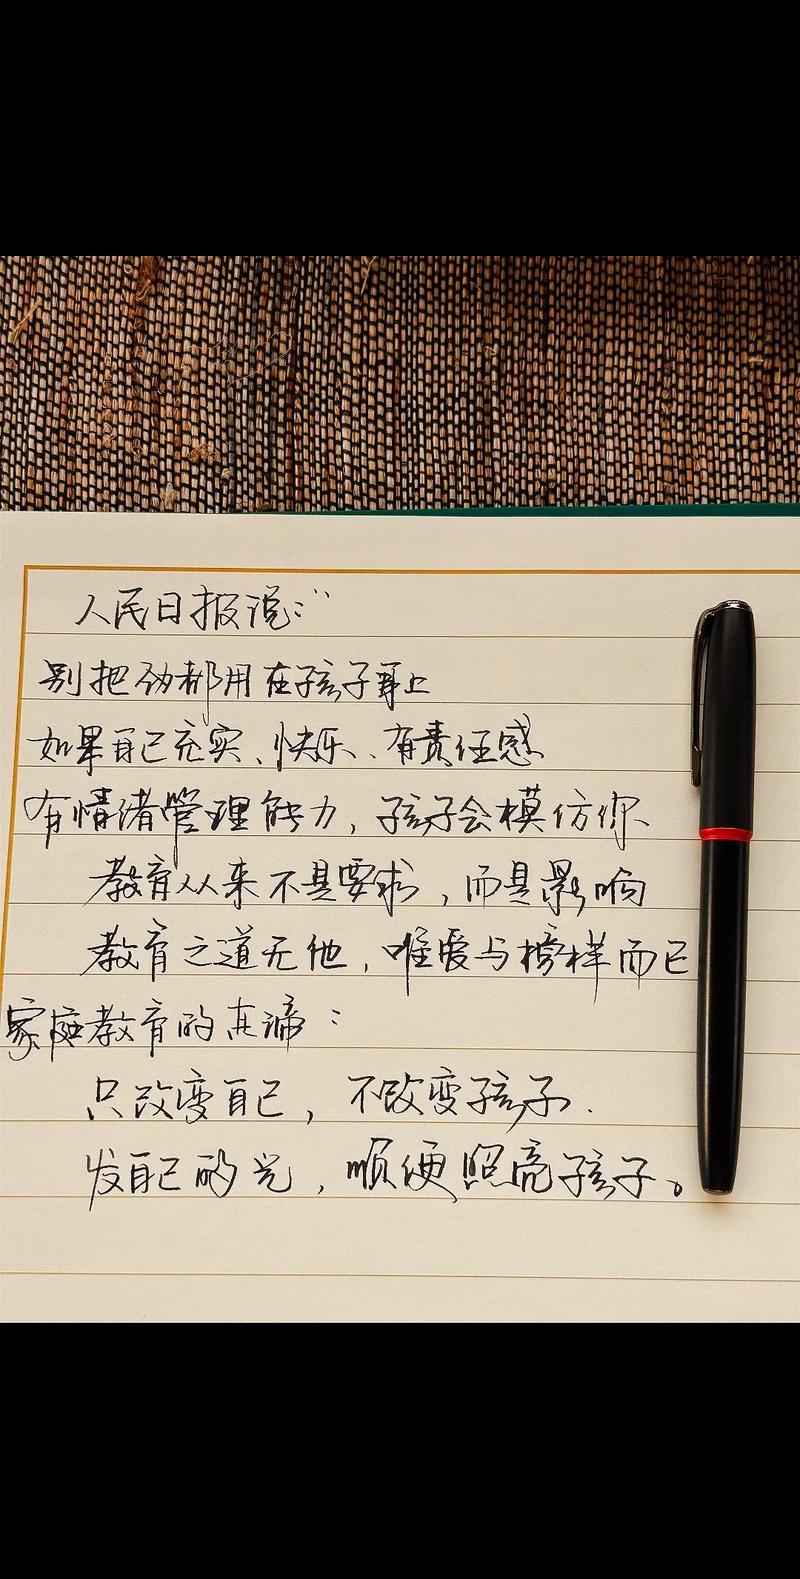 人民日报说:“
别把劲都用在孩子身上
如果自己充实、快乐、有责任感
有情绪管理能力,孩子会模仿你、
教育从来不是要求,而是影响
教育之道无他,唯爱与榜样而已
家庭教育的真谛:
只改变自己,不改变孩子.
发自己的光,顺便照亮孩子。